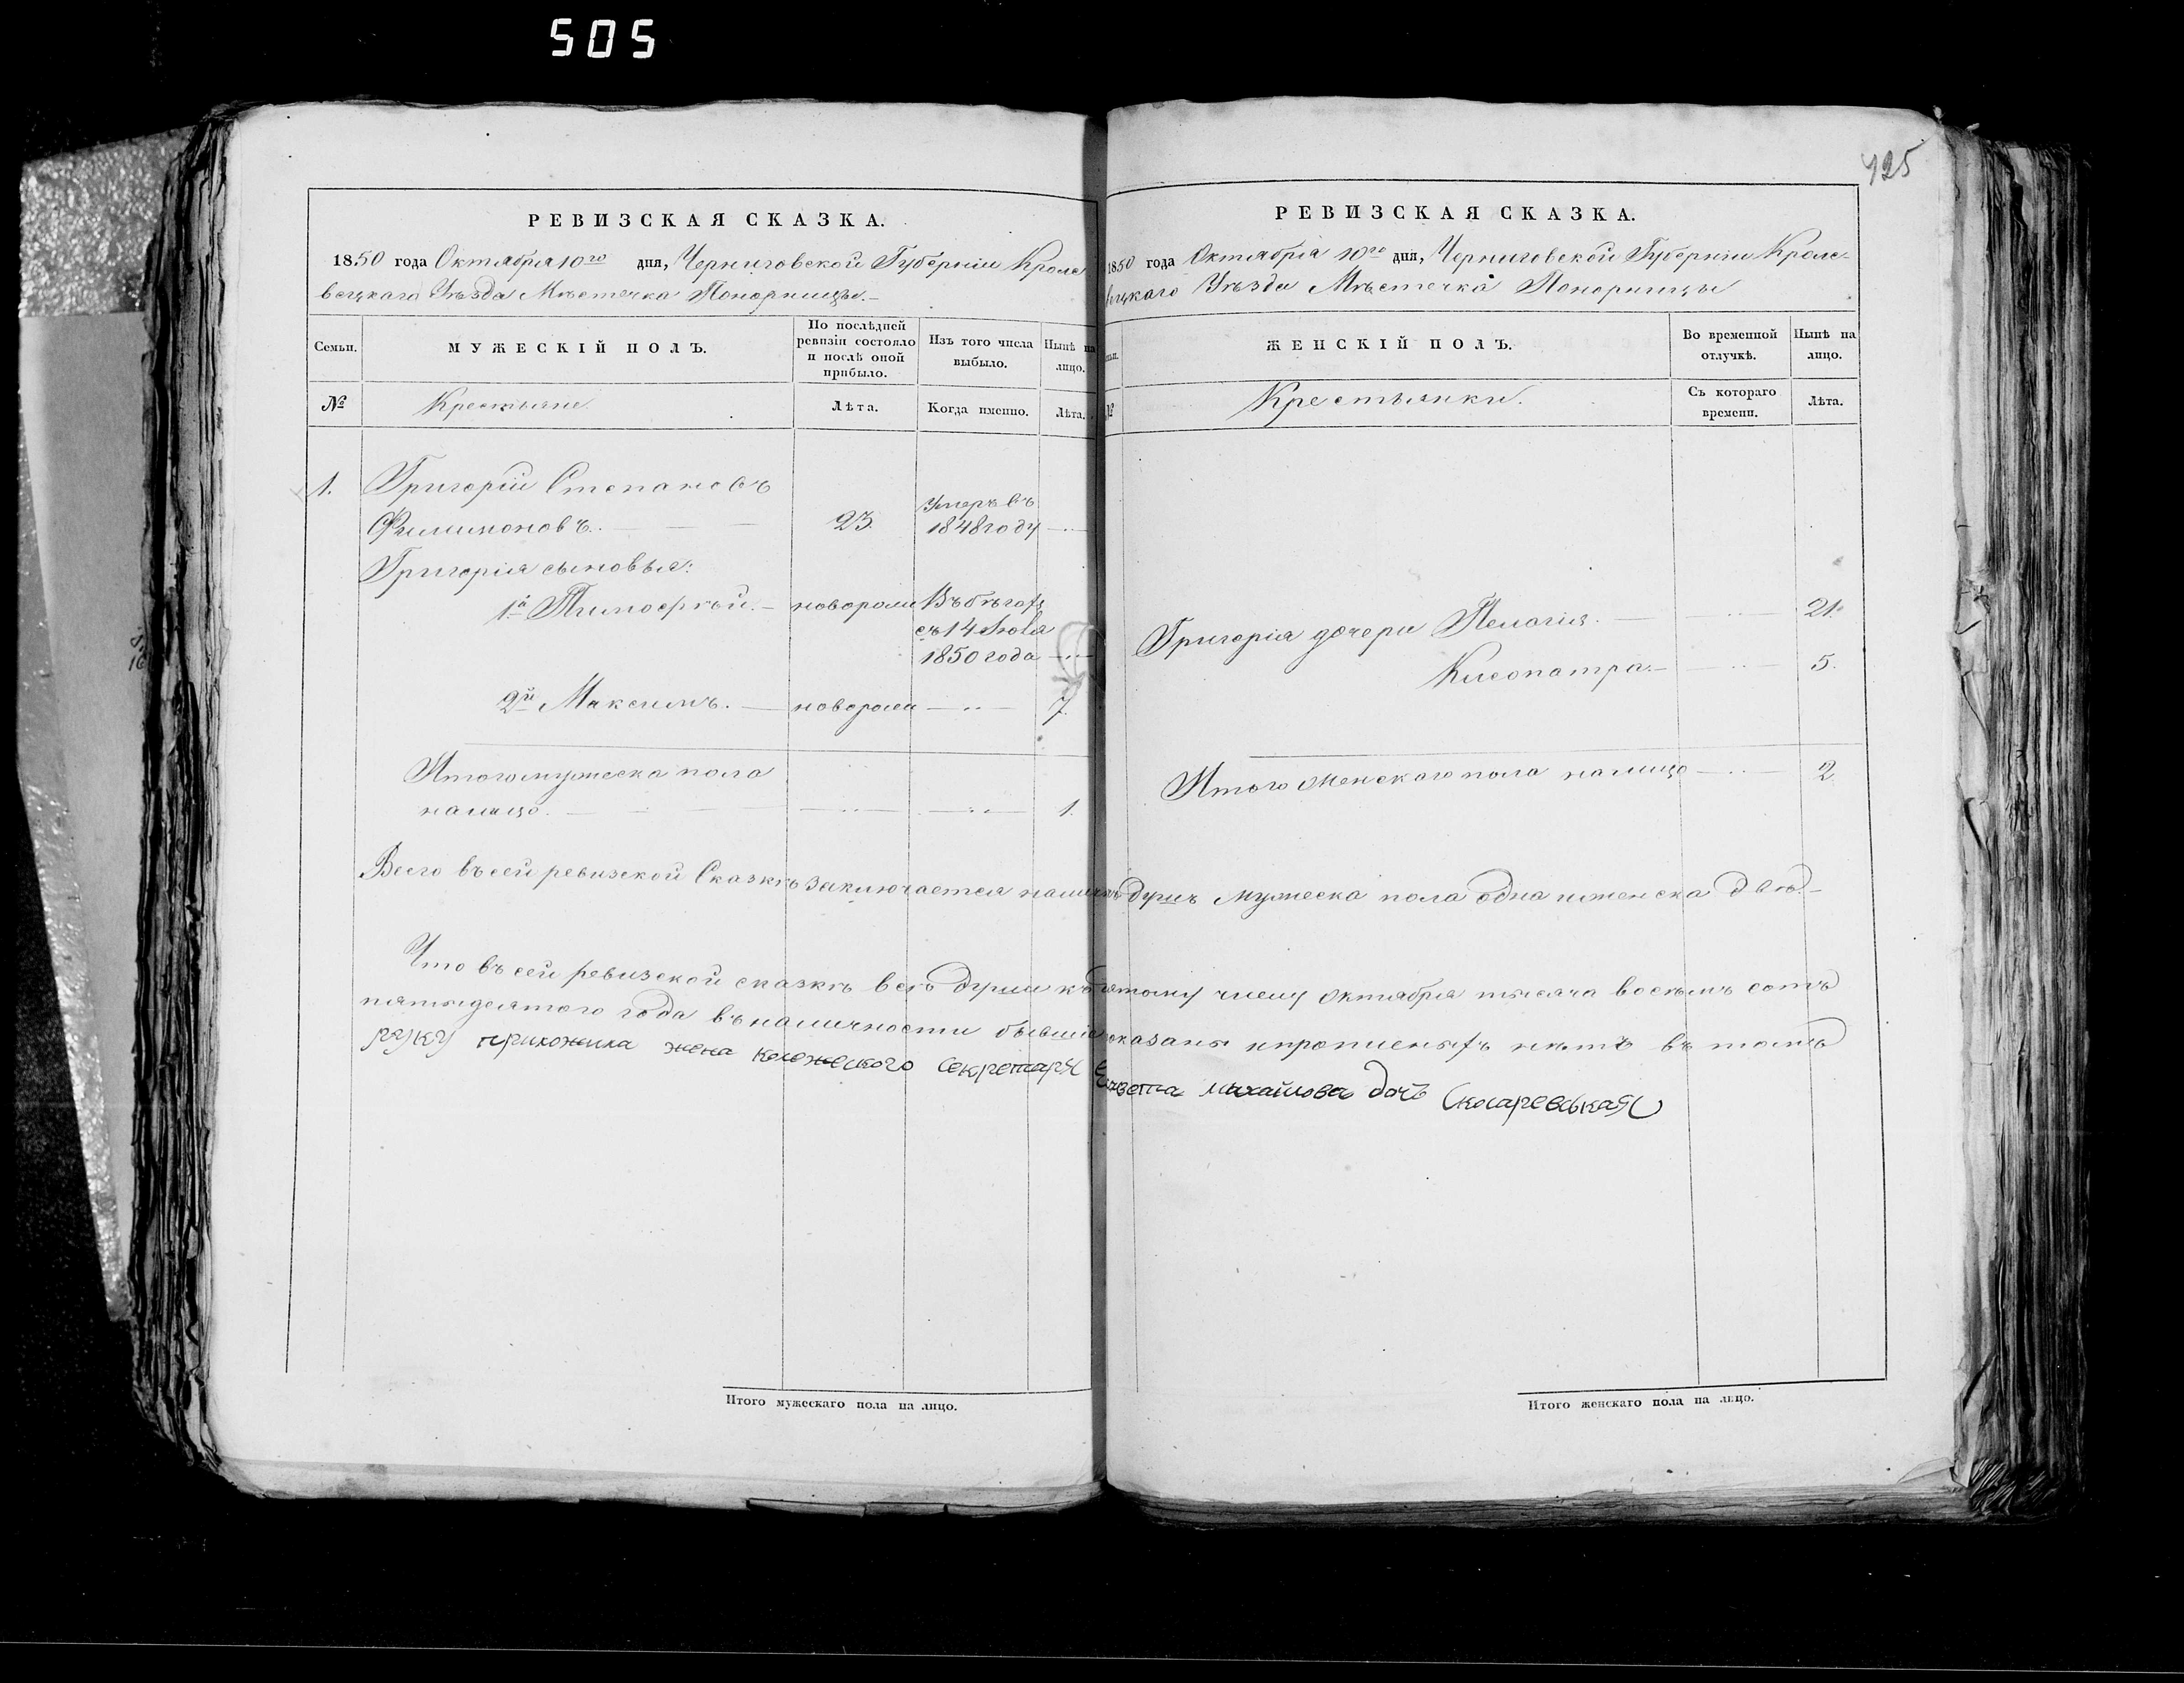 505
РЕВИЗСКАЯ СКАЗКА.
1850 года Октября 10го дня, Черниговской Губерніи Кроле
вецкаго Уѣзда Мѣстечка Понорницы.-
Семьи.
МУЖЕСКІЙ ПОЛЪ.
По послѣдней ревизіи состояло и послѣ оной прибыло.
Изъ того числа выбыло.
Нынѣ на лицо.
№
Крестьяне
Лѣта.
Когда именно.
Лѣта.
1.
Григорій Степановъ
Филимоновъ.
23.
Умеръ въ
1848 году
Григорія сыновья:
1й Тимоѳей.
новорож
Въ бѣгахъ
съ 14 Іюля
1850 года
2й Максимъ.
новорож
7.
Итого мужеска пола
налицо.
1.
125
РЕВИЗСКАЯ СКАЗКА.
1850 года Октября 10го дня, Черниговской Губерніи Кроле-
вецкаго Уѣзда Мѣстечка Понорницы
ЖЕНСКІЙ ПОЛЪ.
Во временной отлучкѣ.
Нынѣ на лицо.
№
Крестьянки.
Съ котораго времени.
Лѣта.
Григорія дочери Пелагія.
21.
Клеопатра.
5.
Итого женскаго пола налицо
2.
Всего въ сей ревизской Сказкѣ заключается наличныхъ душъ мужеска пола одна и женска двѣ.-
Что въ сей ревизской сказкѣ всѣ души къ десятому числу Октября тысяча восемь сотъ
пятидесятого года въ наличности бывшіе показаны и прописныхъ нѣтъ въ томъ
руку приложила жена колежского секретаря михайлова дочь
Итого мужескаго пола на лицо.
Итого женскаго пола на лицо.